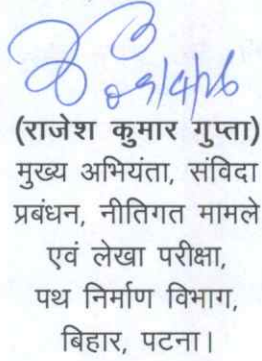 09/4/26
(राजेश कुमार गुप्ता)
मुख्य अभियंता, संविदा
प्रबंधन, नीतिगत मामले
एवं लेखा परीक्षा,
पथ निर्माण विभाग,
बिहार, पटना।